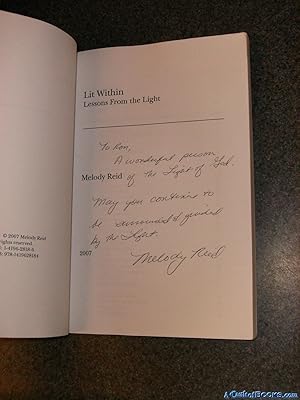 © 2007 Melody Reid
rights reserved.
1-4196-2818-5
978-1419628184
Lit Within
Lessons From the Light
To Ron,
A wonderful person
Melody Reid
of the Light of God.
May you continue to
be surrounded & guided
by the Light.
2007
Melody Reid
ACultofBooks.com